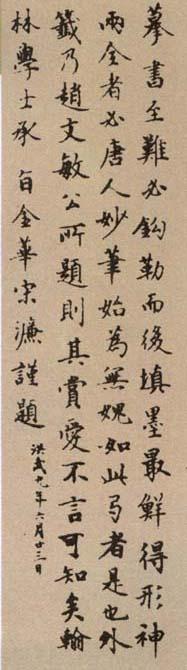 摹書至難必鈎勒而後填墨最鮮得形神
兩全者必唐人妙筆始為無媿如此弓者是也外
籖乃趙文敏公所題則其賞愛不言可知矣翰
林學士承旨金華宋濂謹題
洪武九年六月廿三日